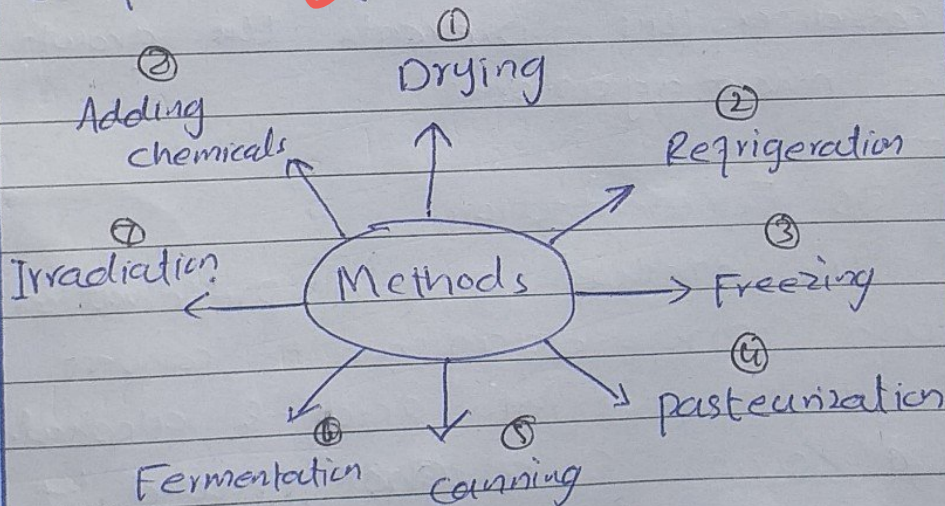 ①
Drying
②
Refrigeration
③
Freezing
④
pasteurization
⑤
canning
⑥
Fermentation
⑦
Irradiation
⑧
Adding
chemicals
Methods